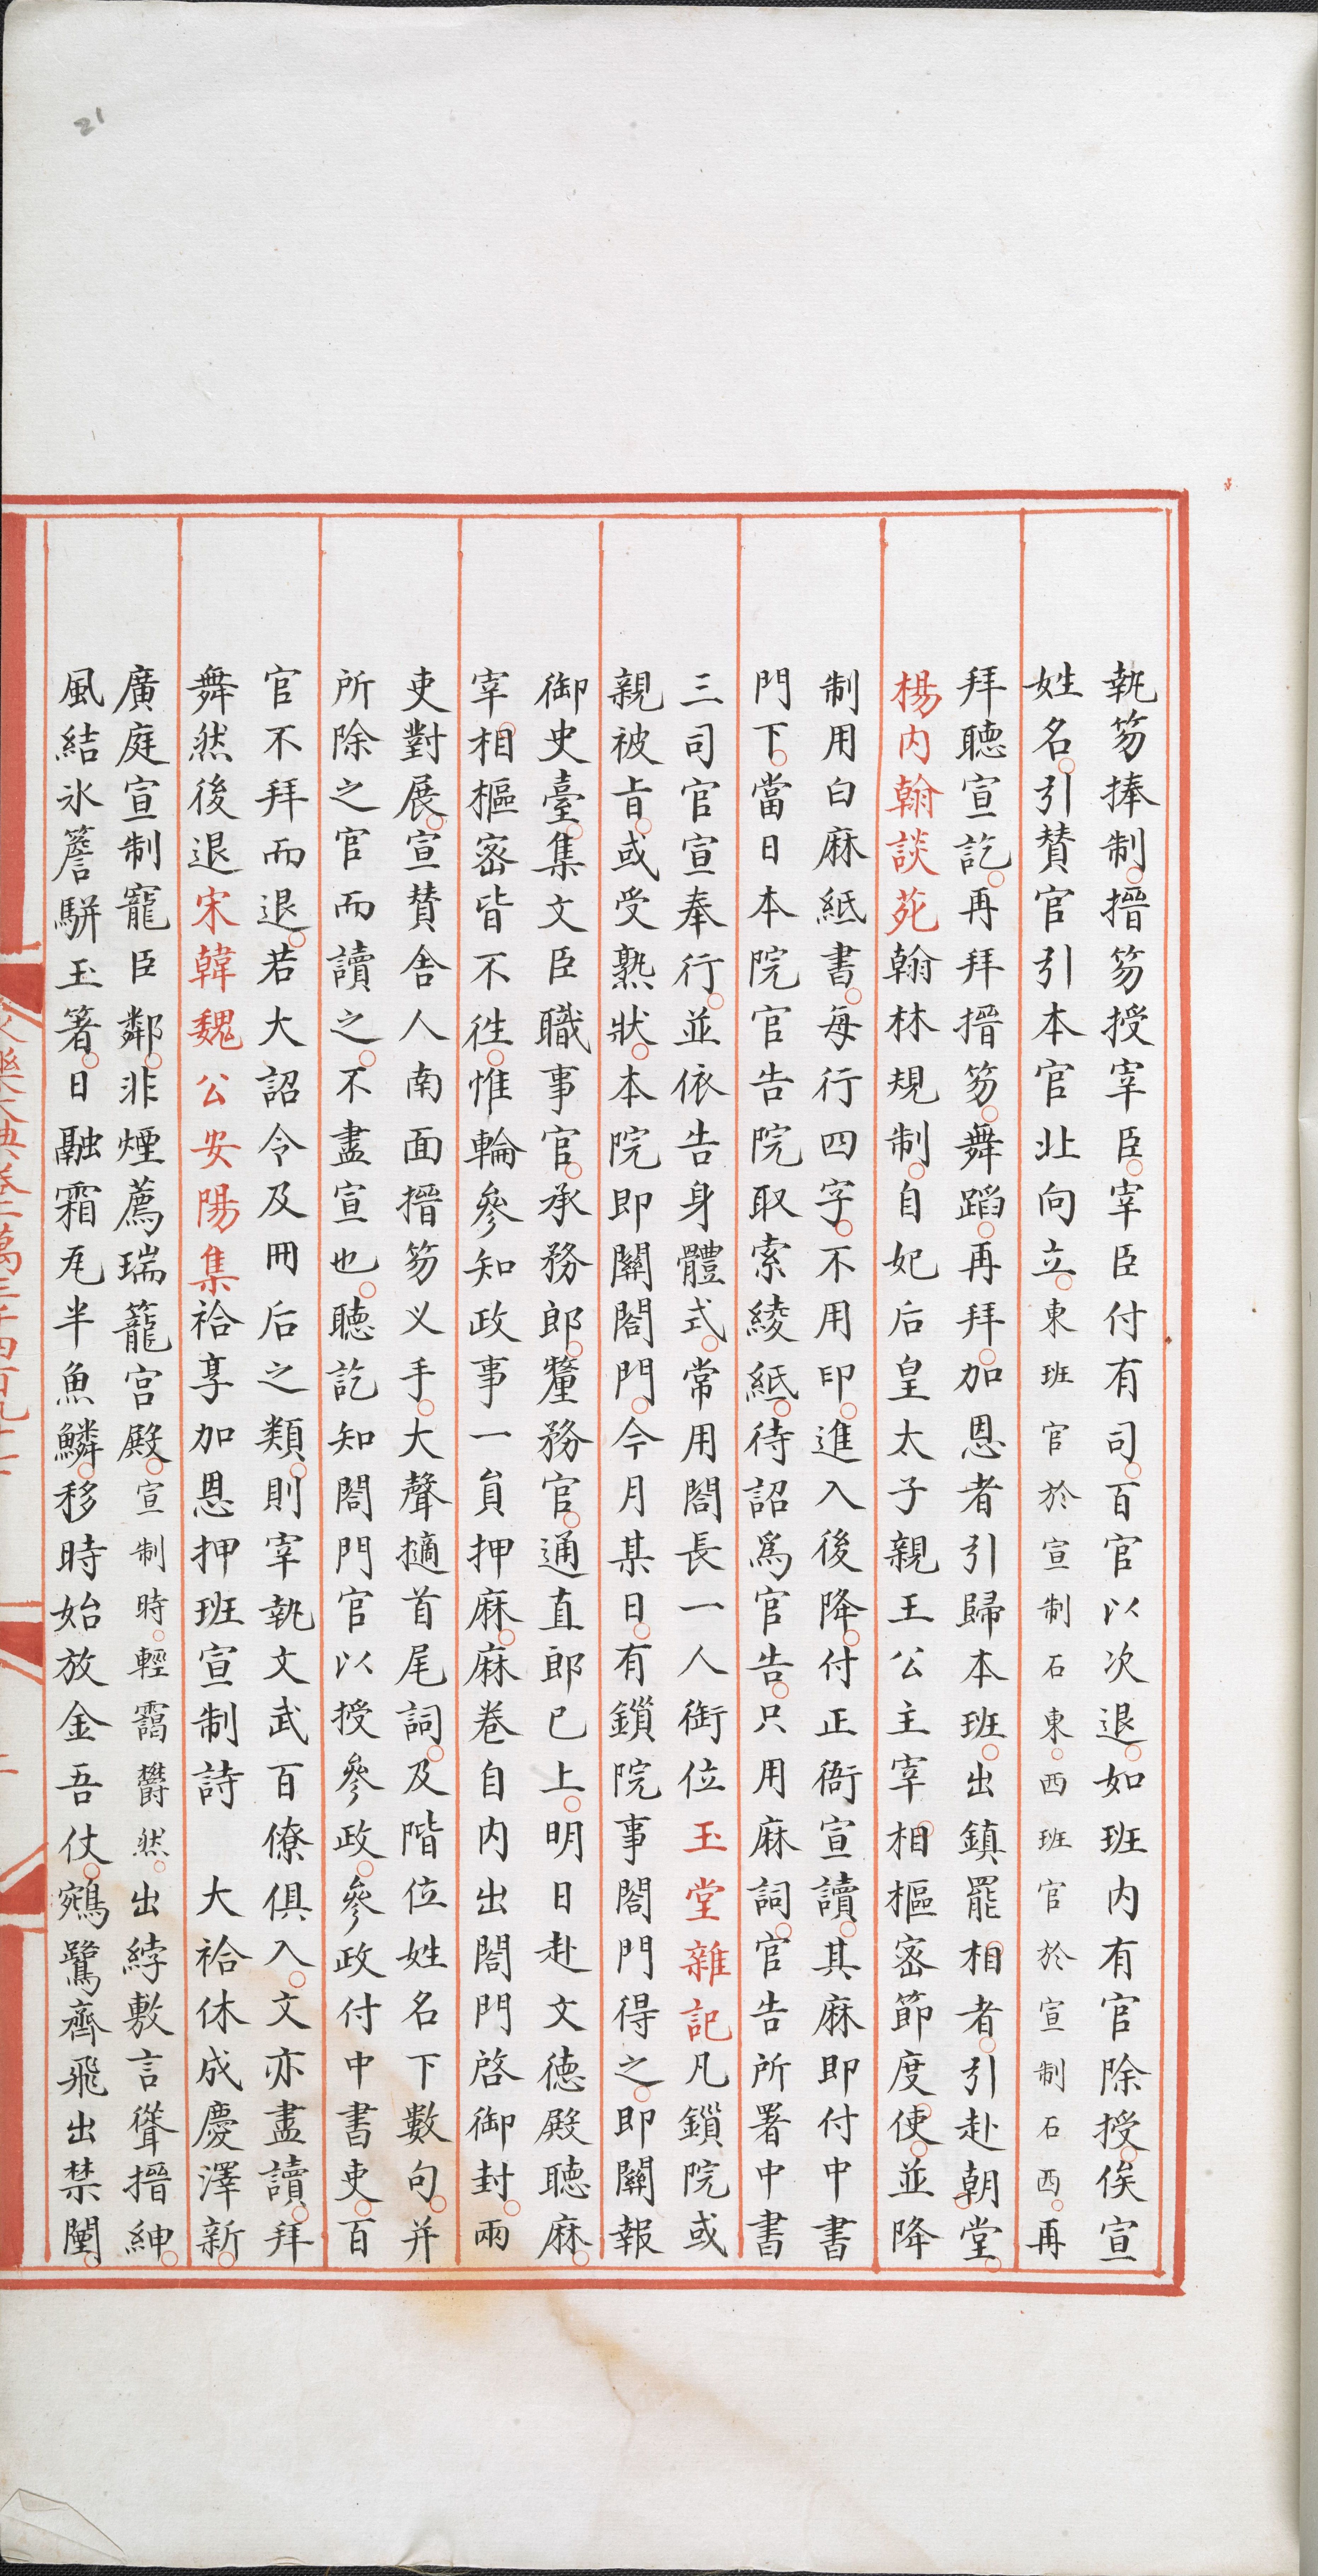 執笏捧制○搢笏授宰臣○宰臣付有司○百官以次退○如班内有官除授○俟宣
姓名○引賛官引本官北向立○東班官於宣制石東○西班官於宣制石西○再
拜聽宣訖○再拜搢笏○舞蹈○再拜○加恩者引歸本班○出鎮罷相者○引赴朝堂○
楊内翰談苑翰林規制○自妃后皇太子親王公主宰相樞密節度使○並降
制用白麻紙書○每行四字○不用印○進入後降○付正衙宣讀○其麻即付中書
門下○當日本院官告院取索綾紙○待詔爲官告○只用麻詞○官告所署中書
三司官宣奉行○並依告身體式○常用閤長一人銜位玉堂雜記凡鎖院或
親被旨○或受熟狀○本院即關閤門○今月某日○有鎖院事閤門得之○即關報
御史臺○集文臣職事官○承務郎○釐務官○通直郎已上○明日赴文德殿聽麻○
宰相樞密皆不徃○惟輪參知政事一員押麻○麻卷自内出閤門啓御封○兩
吏對展○宣賛舍人南面搢笏义手○大聲擿首尾詞○及階位姓名下數句○并
所除之官而讀之○不盡宣也○聽訖知閤門官以授參政○參政付中書吏○百
官不拜而退○若大詔令及冊后之類○則宰執文武百僚俱入○文亦盡讀○拜
舞然後退宋韓魏公安陽集祫享加恩押班宣制詩　大祫休成慶澤新○
廣庭宣制寵臣鄰○非煙薦瑞籠宫殿○宣制時○輕靄欝然○出綍敷言聳搢紳○
風結氷簷駢玉箸○日融霜瓦半魚鱗○移時始放金吾仗○鵷鷺齊飛出禁闉○
21